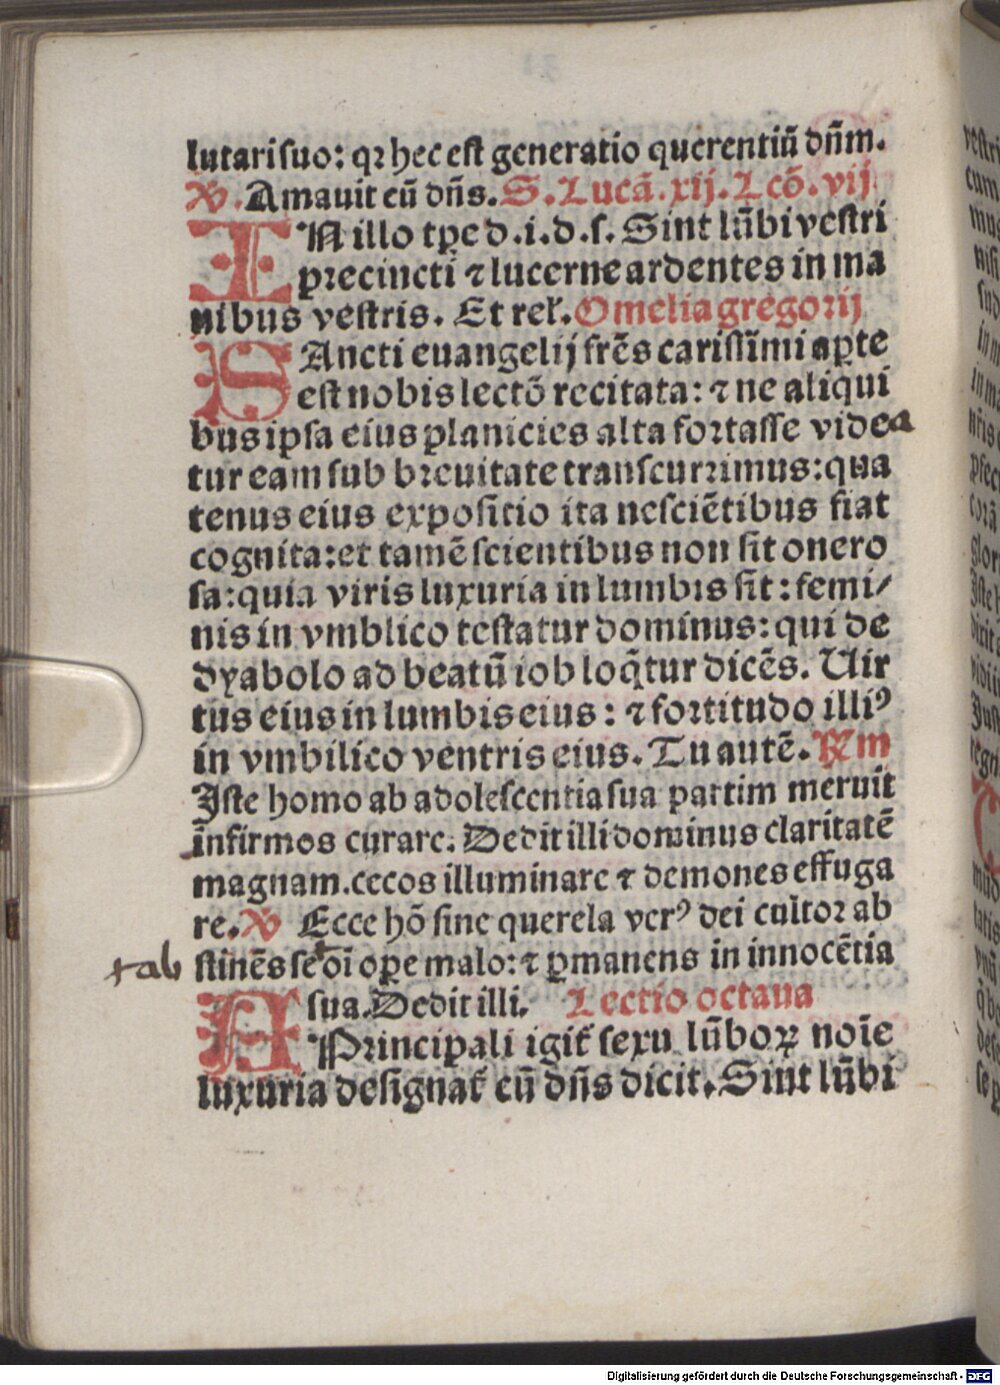 lutari suo: qꝛ hec est generatio querentiū dn̄m.
V. Amauit eū dn̄s. S. Lucā. xij. Lcō. vij
IN illo tꝑe d. i. d. s. Sint lūbi vestri
precincti ⁊ lucerne ardentes in ma
nibus vestris. Et rel̓. Omelia gregorij
SAncti euangelij frēs carissimi aꝑte
est nobis lectō recitata: ⁊ ne aliqui
bus ipsa eius planicies alta fortasse videa
tur eam sub breuitate transcurrimus: qua
tenus eius expositio ita nesciētibus fiat
cognita: et tamē scientibus non sit onero
sa: quia viris luxuria in lumbis sit: femi/
nis in vmblico testatur dominus: qui de
dyabolo ad beatū iob loq̄tur dicēs. Uir
tus eius in lumbis eius: ⁊ fortitudo illiꝰ
in vmbilico ventris eius. Tu autē. Rm
Iste homo ab adolescentia sua partim meruit
infirmos curare. Dedit illi dominus claritatē
magnam. cecos illuminare ⁊ demones effuga
re. V Ecce hō sine querela verꝰ dei cultor ab
+ab stinēs se + oī oꝑe malo: ⁊ ꝑmanens in innocētia
sua. Dedit illi. Lectio octaua
A Principali igit̓ sexu lūboꝝ noīe
luxuria designat̓ cū dn̄s dicit. Sint lūbi
Digitalisierung gefördert durch die Deutsche Forschungsgemeinschaft - DFG